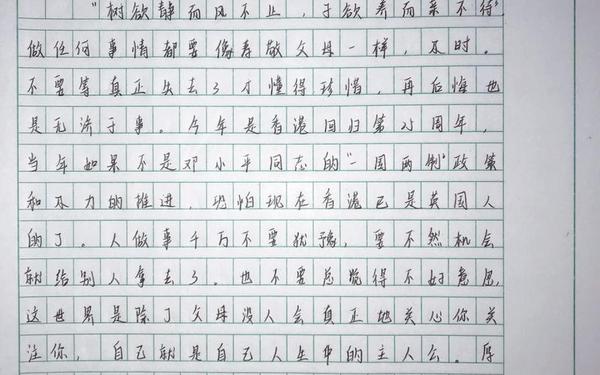 "树欲静而风不止，子欲养而亲不待"
做任何事情都要像孝敬父母一样，及时。
不要等真正失去了才懂得珍惜，再后悔也
是无济于事。今年是香港回归第25周年，
当年如果不是邓小平同志的"一国两制"政策
和大力的推进，恐怕现在香港已是英国人
的了。人做事千万不要犹豫，要不然机会
就给别人拿去了。也不要总觉得不好意思，
这世界是除了父母没人会真正地关心你关
注你，自己就是自己人生中的主人公。厚